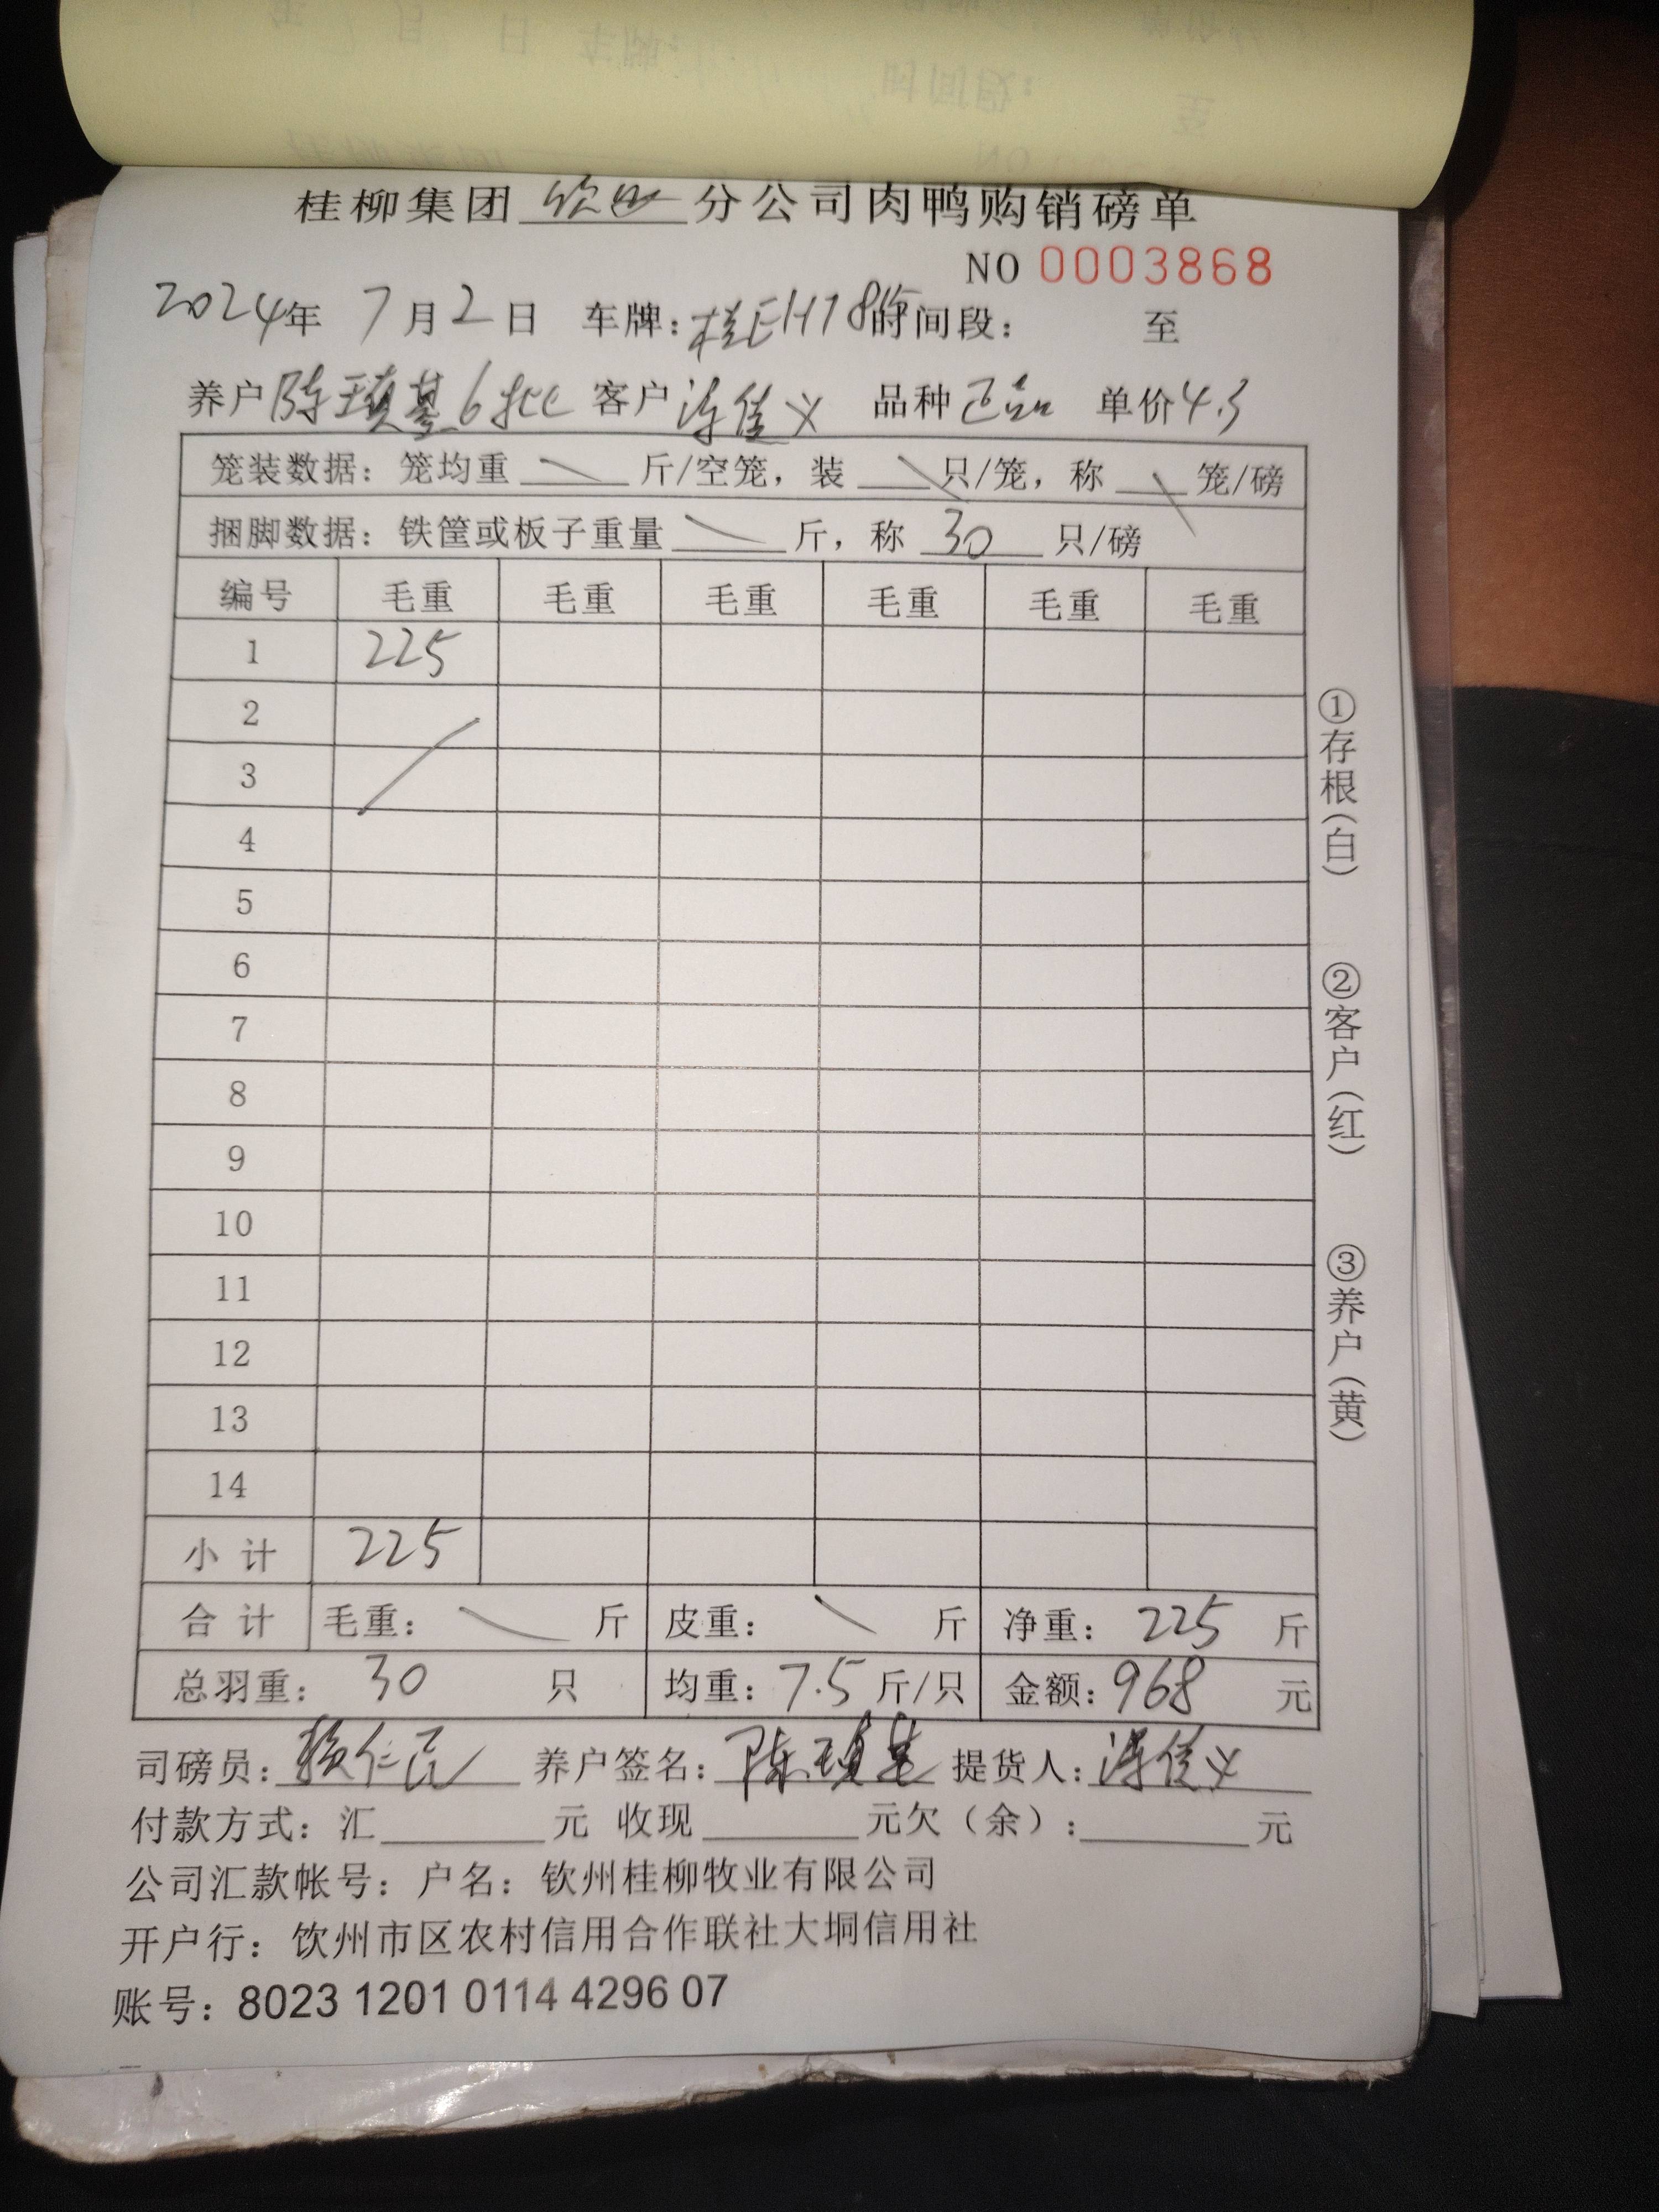 桂柳集团 钦州 分公司肉鸭购销磅单
NO 0003868
2024年 7月2日 车牌：桂EH18 时间段： 至
养户 陈瑱基6批 客户 佳义 品种 正品 单价4.3
笼装数据：笼均重 斤/空笼，装 只/笼，称 笼/磅
捆脚数据：铁筐或板子重量 斤，称 30 只/磅
编号 毛重 毛重 毛重 毛重 毛重 毛重
1 225
2
3
4
5
6
7
8
9
10
11
12
13
14
小计 225
合计 毛重： 斤 皮重： 斤 净重：225 斤
总羽重：30 只 均重：7.5 斤/只 金额：968 元
司磅员： 养户签名：陈瑱基 提货人： 佳义
付款方式：汇 元 收现 元欠（余）： 元
公司汇款帐号：户名：钦州桂柳牧业有限公司
开户行：饮州市区农村信用合作联社大垌信用社
账号：8023 1201 0114 4296 07
①存根（白）
②客户（红）
③养户（黄）